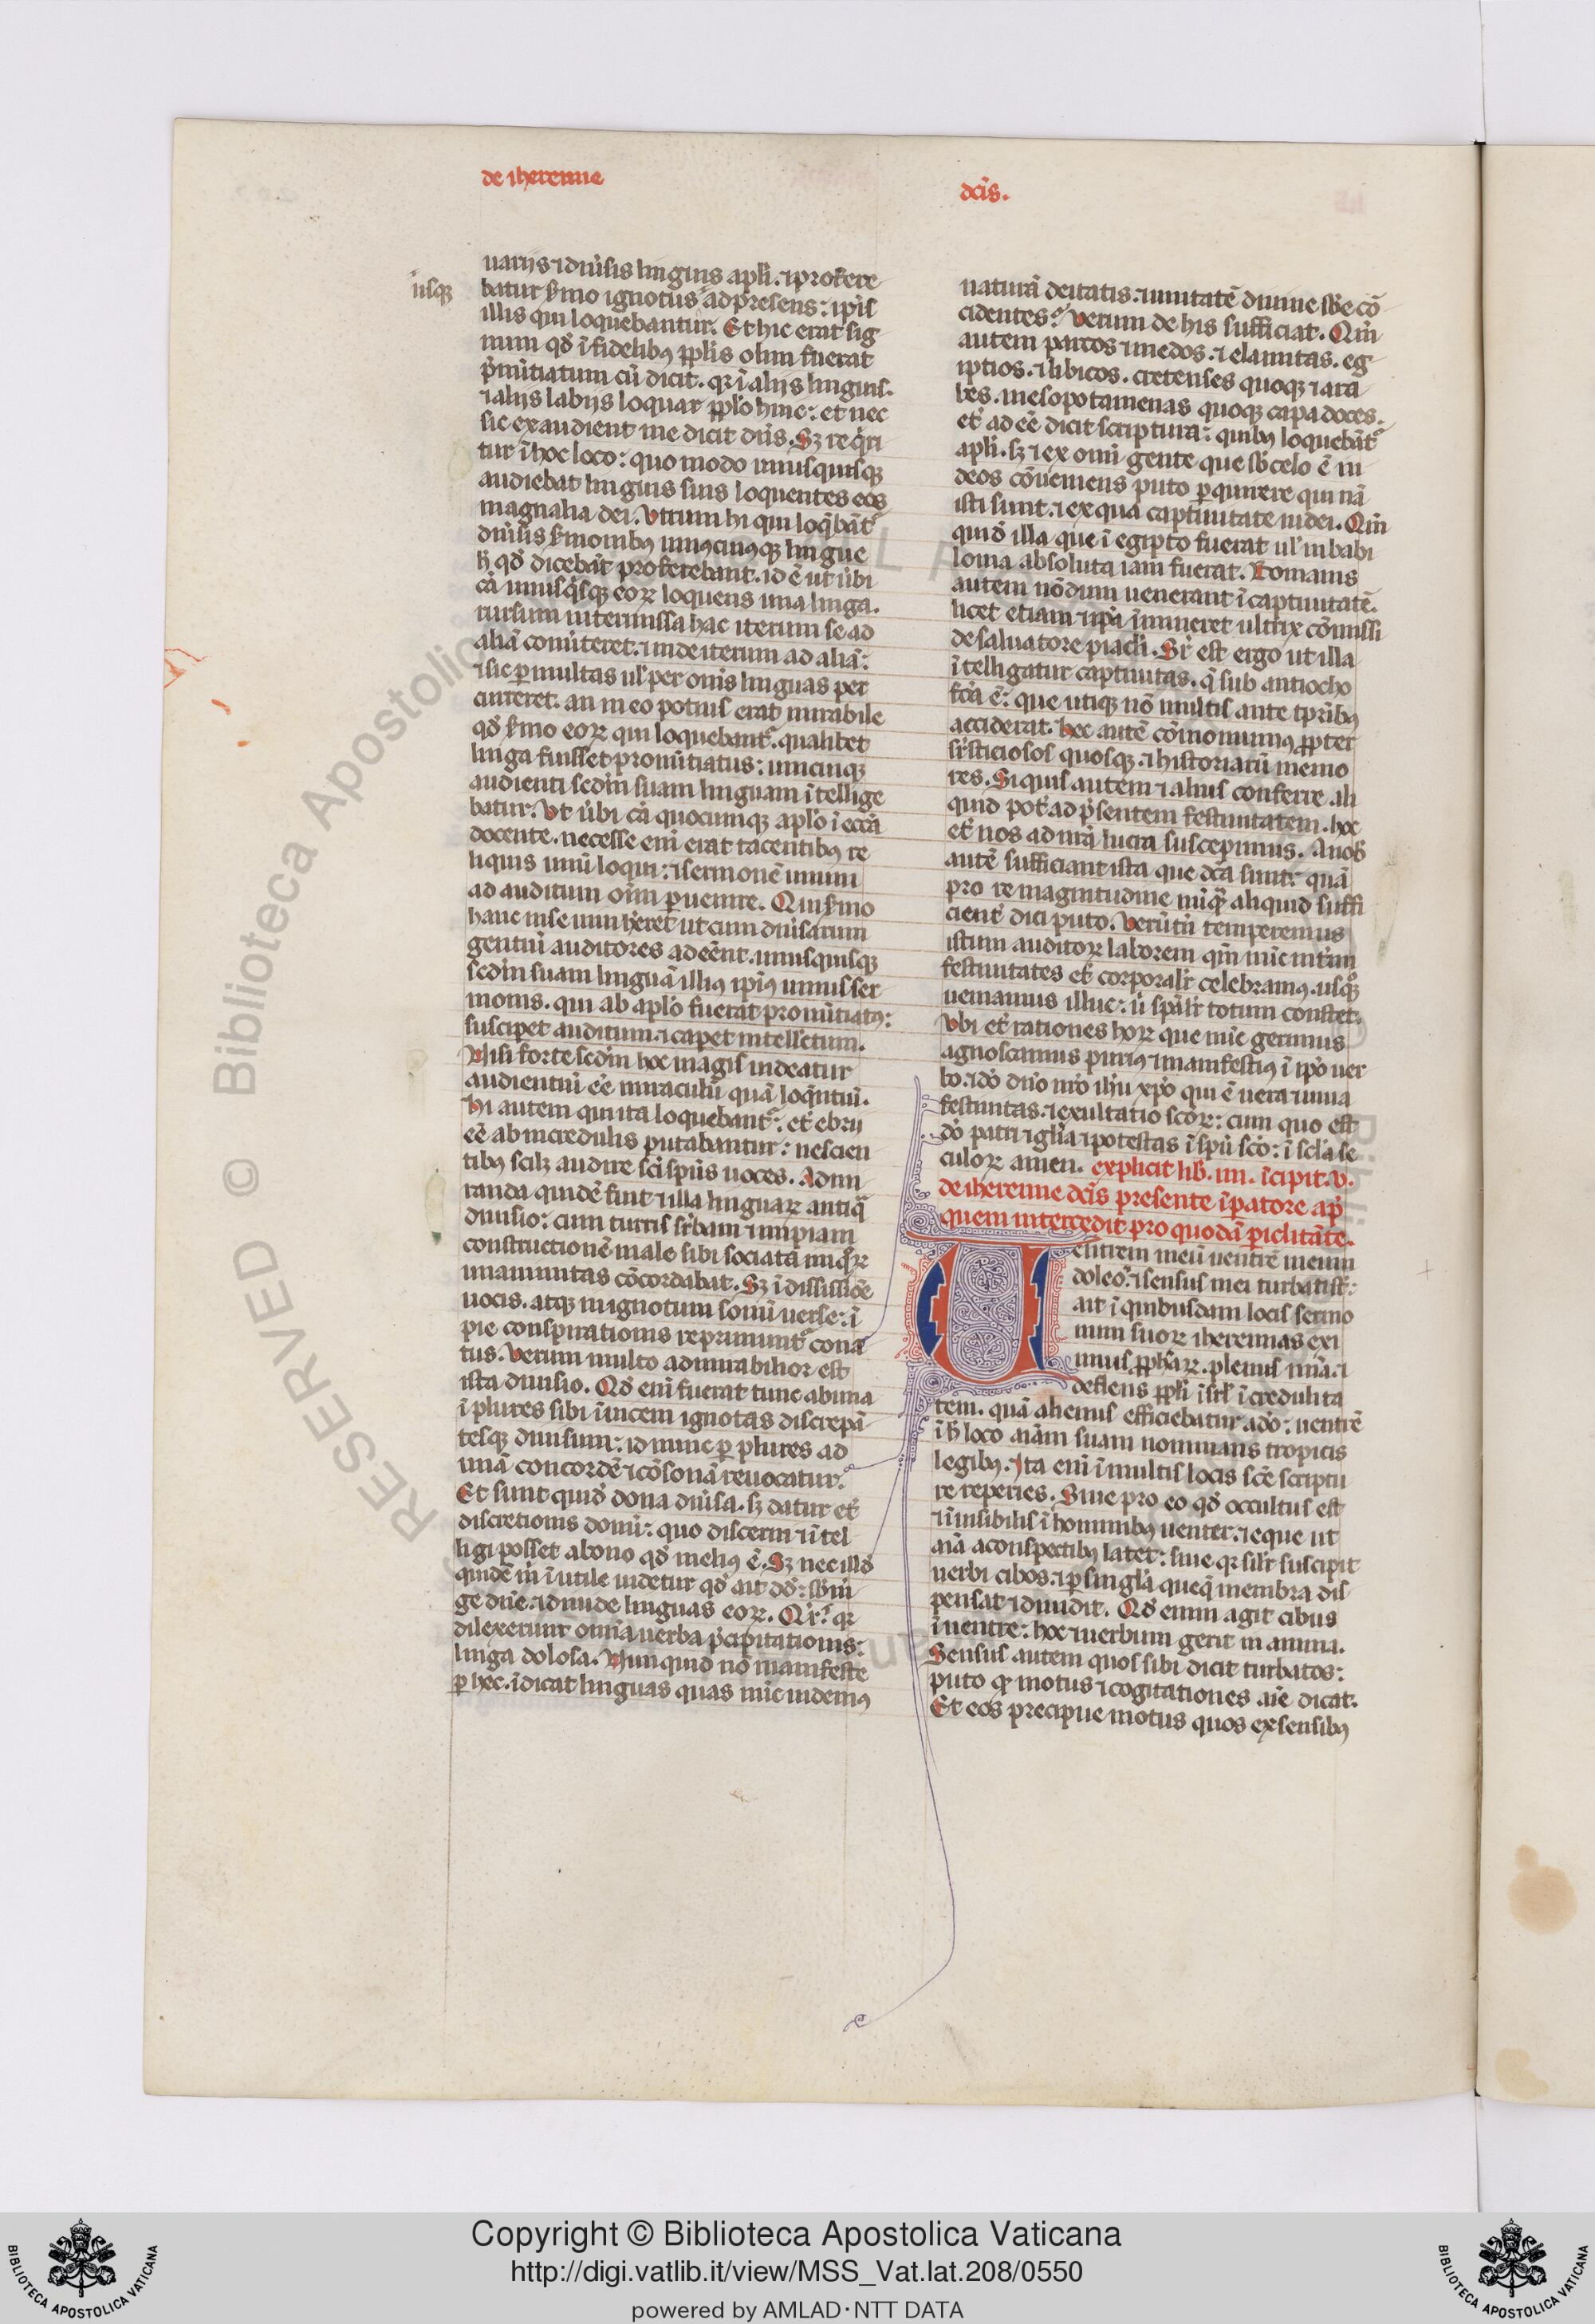 de iheremie
dc̄is.
uarijs ⁊ diũsis linguis apl̃i. ⁊ profere
usqꝫ
batur s̃mo ignotus ad presens: ipis
illis qui loquebantur. Et hic erat sig
num qď ĩfidelibꝰ pplis olim fuerat
p̃nũtiatum cũ dicit. qꝛ ĩ alijs linguis.
⁊ alijs labijs loquar pplo huic: et nec
sic exaudient me dicit dñs. Sꝫ req̃ri
tur ĩ hoc loco: quo modo unusquisqꝫ
audiebat linguis suis loquentes eos
magnalia dei. Vtrum hi qui loq̃bãt᷑
diũsis s̃monibꝰ uniꝰcuiꝰqꝫ lingue
h̃ qď dicebãt proferebant. id ẽ ut ubi
cã unusq̃sqꝫ eoꝝ loquens una linga.
rursum intermissa hac iterum se ad
aliã conũteret. ⁊ inde iterum ad aliã:
⁊ sic ꝑ multas ul̓ per om̃s linguas per
curreret: an in eo potius erat mirabile
qď s̃mo eoꝝ qui loquebant᷑. qualibet
linga fuisset pronũtiatus: unicuiqꝫ
audienti scďm suam linguam ĩtellige
batur. Vt ubi cã quocumqꝫ aplo ĩ ecc̃a
docente. necesse eni erat tacentibꝰ re
liquis unũ loqui: ⁊ sermonẽ unum
ad auditum oĩm ꝑuenire. Qui s̃mo
hanc in se uim h̃eret ut cum diũsarum
gentiũ auditores adeẽnt. unusquisqꝫ
scďm suam linguã illiꝰ ipiꝰ unius ser
monis. qui ab aplo fuerat pronũtiatꝰ:
susciꝑet auditum. ⁊ caꝑet intellectum.
Nisi forte scďm hoc magis uideatur
audientiũ eẽ miraculũ quã loq̃ntiũ.
Hi autem qui ita loquebant᷑: et̓ ebrij
eẽ ab incredulis putabantur: nescien
tibꝰ scilꝫ audire sc̃i sp̃us uoces. Admi
randa quidẽ fuit ⁊ illa linguaꝝ antiq̃
diuisio: cum turris sr̃bam ⁊ impiam
constructionẽ male sibi sociata iniq̃ꝝ
unanimitas cõcordabat. Sꝫ ĩ dississiõe
uocis. atqꝫ in ignotum sonũ uerse: ĩ
pie conspirationis reprimunt᷑ cona
tus. Verum multo admirabilior est
ista diuisio. Qď eni fuerat tunc ab una
ĩ plures sibi ĩuicem ignotas discrepã
tesqꝫ diuisum: id nunc ꝑ plures ad
unã concordẽ ⁊ cõsonã reuocatur.
Et sunt quiď dona diũsa. sꝫ datur et̓
discretionis donũ: quo discerni ⁊ ĩtel
ligi posset a bono qď meliꝰ ẽ. Sꝫ nec illď
quidẽ m̃ ĩutile uidetur qď ait dď: sbm̃
ge dñe. ⁊ diuide linguas eoꝝ. Qr̃: qꝛ
dilexerunt omĩa uerba p̃cipitationis:
linga dolosa. Nunquid nõ manifeste
ꝑ hec. ĩdicat linguas quas nũc uidemꝰ
naturã deitatis. ⁊ unitatẽ diuine sb̃e cõ
cidentes? Verum de his sufficiat. Qm̃
autem partos ⁊ medos. ⁊ elamitas. eg
iptios. ⁊ libicos. cretenses quoqꝫ ⁊ ara
bes. mesopotamenas quoqꝫ capadoces.
et̓ adeẽ dicit scriptura: quibꝰ loquebãt᷑
apl̃i. sꝫ ⁊ ex omi gente que sb̃ celo ẽ iu
deos cõueniens puto ꝑquirere qui nã
isti sunt. ⁊ ex qua captiuitate iudei. Qm̃
quiď illa que ĩ egipto fuerat ul̓ in babi
lonia absoluta iam fuerat. Romanis
autem nõdum uenerant ĩ captiuitatẽ.
licet etiam ⁊ ip̃a ĩmineret ultrix cõmissi
de saluatore piacli. Sr̃ est ergo ut illa
ĩtelligatur captiuitas. q̃ sub antiocho
fc̃a ẽ: que utiqꝫ nõ multis ante tp̃ribꝰ
acciderat. hec autẽ cõmonuimꝰ ꝓpter
sr̃sticiosos quosqꝫ. ⁊ historiarũ memo
res. Si quis autem ⁊ alius conferre ali
quid pot̓. ad p̃sentem festiuitatem. hoc
et̓ nos ad nr̃a lucra suscepimus. A nob̃
autẽ sufficiant ista que dc̃a sunt: quã
pro re magnitudine nũq̃ aliquid suffi
cient̓ dici puto. Verũtñ temperemus
istum auditoꝝ laborem qm̃ nũc int̓im
festiuitates et̓ corporalr̃ celebramꝰ. usqꝫ
ueniamus illuc: ũ sp̃alr̃ totum constet.
Vbi et̓ rationes hoꝝ que nũc gerimus
agnoscamus puriꝰ ⁊ manifestiꝰ ĩ ipo uer
bo. ⁊ dõ dño nr̃o ihũ xp̃o qui ẽ uera ⁊ una
festiuitas. ⁊ exultatio sc̃oꝝ: cum quo est
dõ patri ⁊ gl̃ia ⁊ potestas ĩ sp̃u sc̃o: ĩ scl̃a se
culoꝝ amen. explicit lib̃. iiii. ĩcipit. v.
de iheremie dc̄is presente ĩpatore ap̃
quem intercedit pro quodã ꝑiclitãte.
Uentrem meũ uentrẽ meum
doleo: ⁊ sensus mei turbati st̃:
ait ĩ quibusdam locis sermo
num suoꝝ iheremias exi
mius ꝓphaꝝ. plenus mĩa. ⁊
deflens ppli isrl̃ ĩcredulita
tem. quã alienus efficiebatur a dõ: uentrẽ
ĩ h̃ loco aĩam suam nominans tropicis
legibꝰ. Ita eni ĩ multis locis sc̃e scriptu
re reperies. Siue pro eo qď occultus est
⁊ ĩuisibilis ĩ hominibꝰ uenter: ⁊ eque ut
aĩa a conspectibꝰ latet: siue qꝛ silr̃ suscipit
uerbi cibos: ⁊ ꝑ singl̃a queq̃ membra dis
pensat ⁊ diuidit. Qď enim agit cibus
ĩ uentre: hoc ⁊ uerbum gerit in anima.
Sensus autem quos sibi dicit turbatos:
puto qꝛ motus ⁊ cogitationes aĩe dicat.
Et eos precipue motus quos ex sensibꝰ
RESERVED © Biblioteca Apostolica
Copyright © Biblioteca Apostolica Vaticana
http://digi.vatlib.it/view/MSS_Vat.lat.208/0550
powered by AMLAD·NTT DATA
BIBLIOTECA APOSTOLICA VATICANA
BIBLIOTECA APOSTOLICA VATICANA